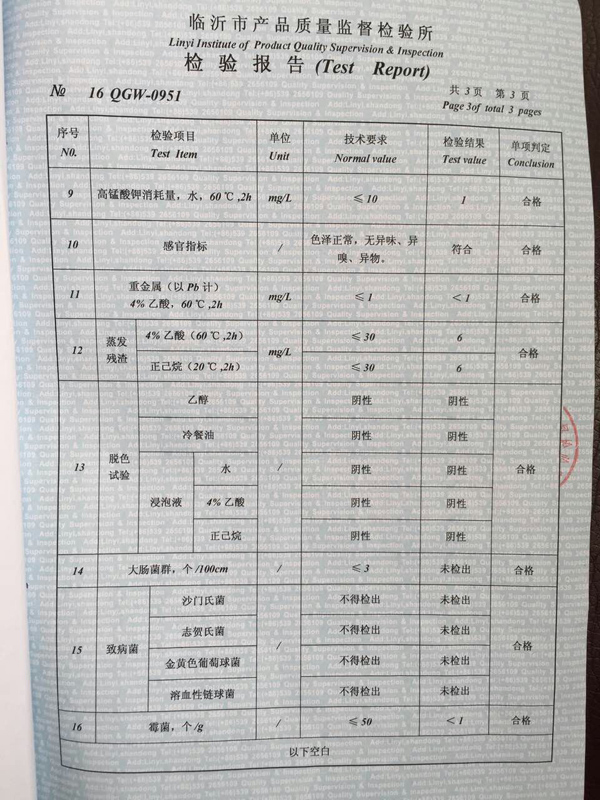 临沂市产品质量监督检验所
Linyi Institute of Product Quality Supervision & Inspection
检 验 报 告 (Test Report)
№ 16 QGW-0951
共 3 页 第 3 页
Page 3of total 3 pages
序号 检验项目 单位 技术要求 检验结果 单项判定
N0. Test Item Unit Normal value Test value Conclusion
9 高锰酸钾消耗量，水，60℃,2h mg/L ≤10 1 合格
10 感官指标 / 色泽正常，无异味、异嗅、异物。 符合 合格
11 重金属（以 Pb 计） 4%乙酸，60℃,2h mg/L ≤1 <1 合格
12 蒸发残渣 4%乙酸（60℃,2h） mg/L ≤30 6 合格
正己烷（20℃,2h） ≤30 6
13 脱色试验 乙醇 / 阴性 阴性 合格
冷餐油 阴性 阴性
浸泡液 水 阴性 阴性
4%乙酸 阴性 阴性
正己烷 阴性 阴性
14 大肠菌群，个/100cm / ≤3 未检出 合格
15 致病菌 沙门氏菌 / 不得检出 未检出 合格
志贺氏菌 不得检出 未检出
金黄色葡萄球菌 不得检出 未检出
溶血性链球菌 不得检出 未检出
16 霉菌，个/g / ≤50 <1 合格
以下空白